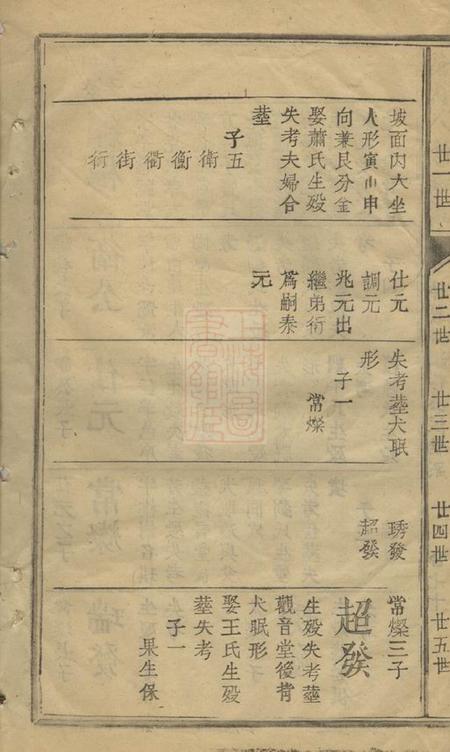 廿一世
廿二世
廿三世
廿四世
廿五世
坡面內大坐
人形寅山申
向兼艮分金
娶蕭氏生歿
失考夫婦合
塟
子五
衛
衡
衢
街
衍
仕元
調元
兆元出
繼弟衍
爲嗣泰
元
失考塟犬眠
形
子一
常燦
琇發
超發
常燦三子
超發
生歿失考塟
觀音堂後背
犬眠形
娶王氏生歿
塟失考
子一
果生保